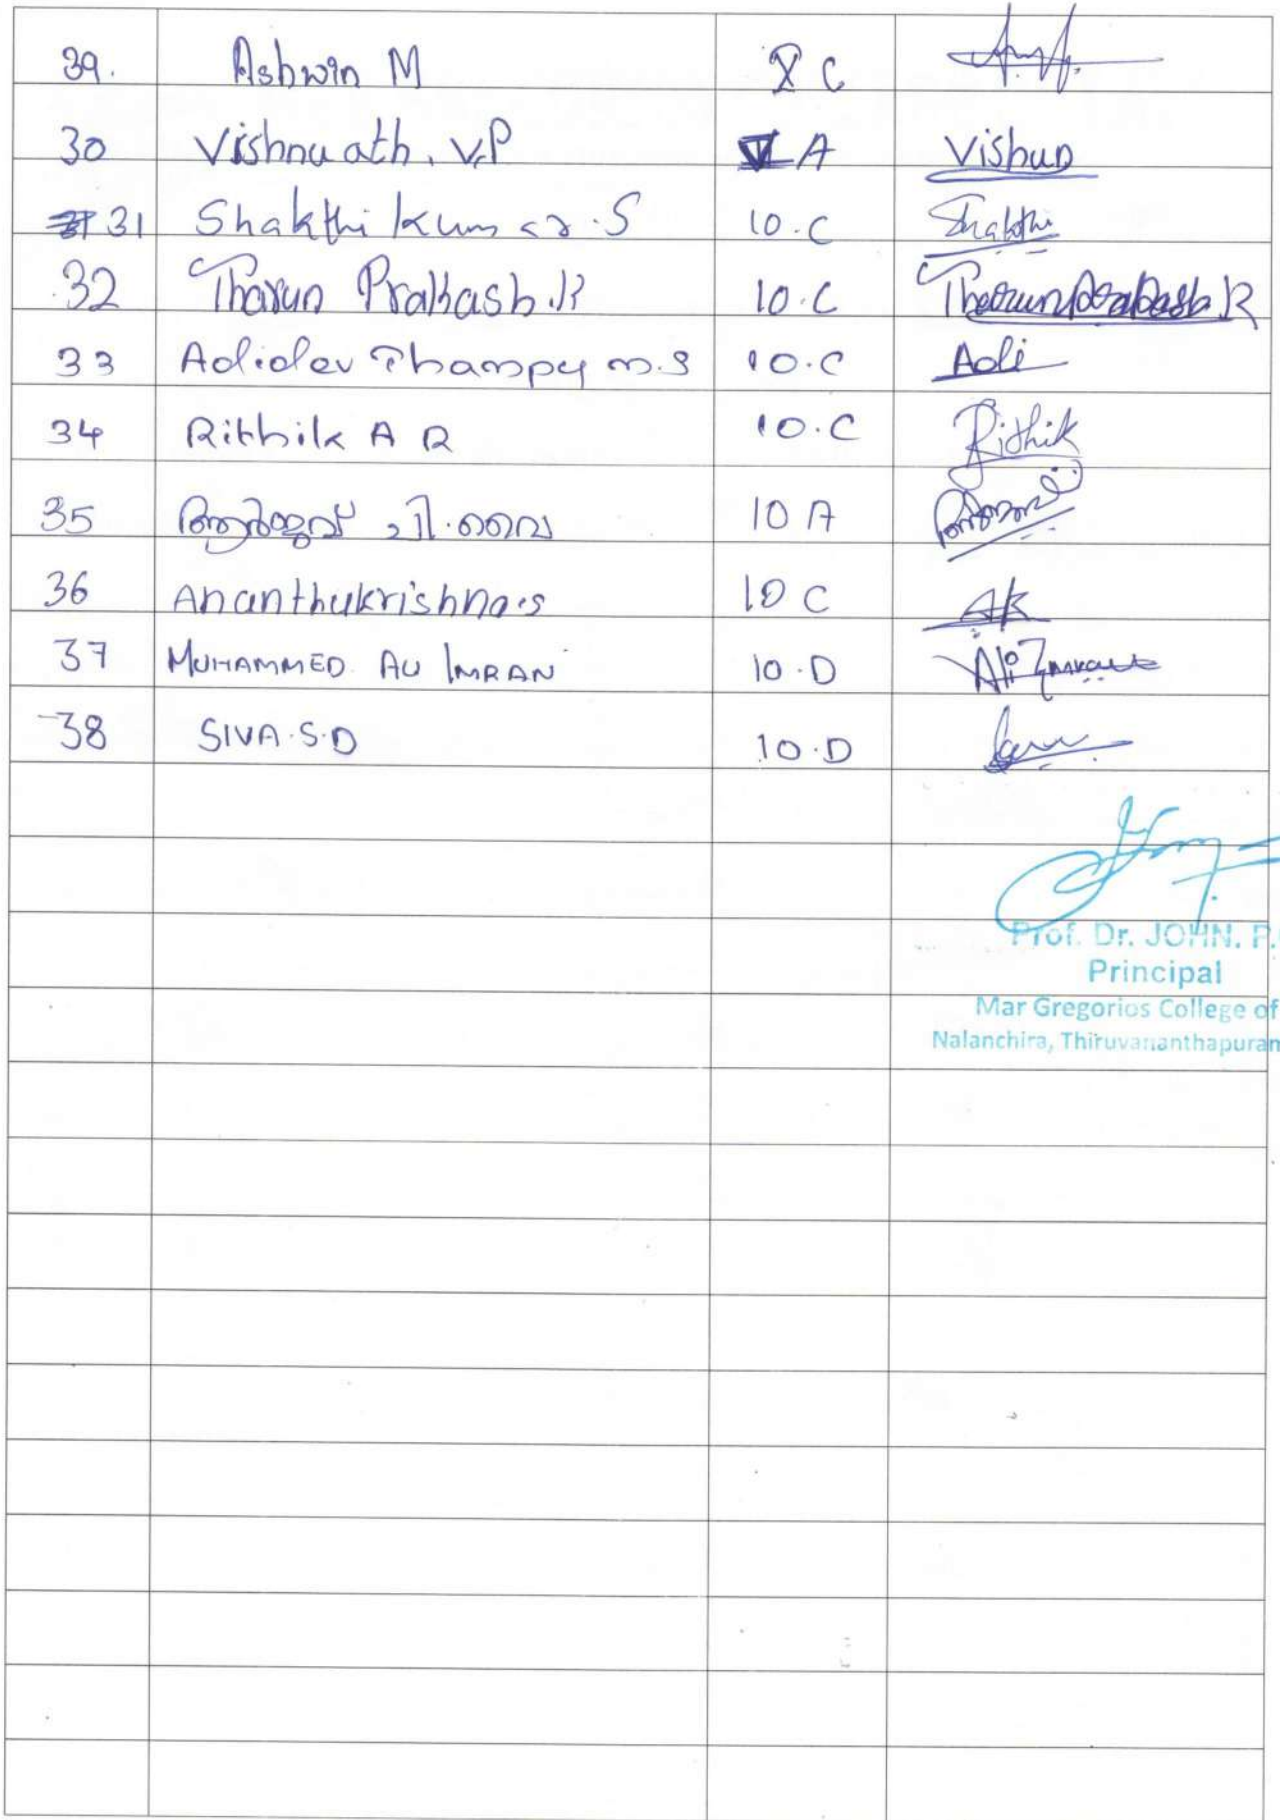 39. Ashwin M X C
30 Vishnu ath. V.P A Vishnu
31 Shakthi kumar.S 10.C Shakthi
32 Tharun Prakash.R 10.C Tharunprakash R
33 Adidev Thampy m.s 10.C Adi
34 Rithik A R 10.C Rithik
35 10 A
36 Ananthukrishna.s 10 C AK
37 MUHAMMED ALI IMRAN 10.D Ali Imran
38 SIVA.S.D 10.D
Prof. Dr. JOHN. P.
Principal
Mar Gregorios College of
Nalanchira, Thiruvananthapuram